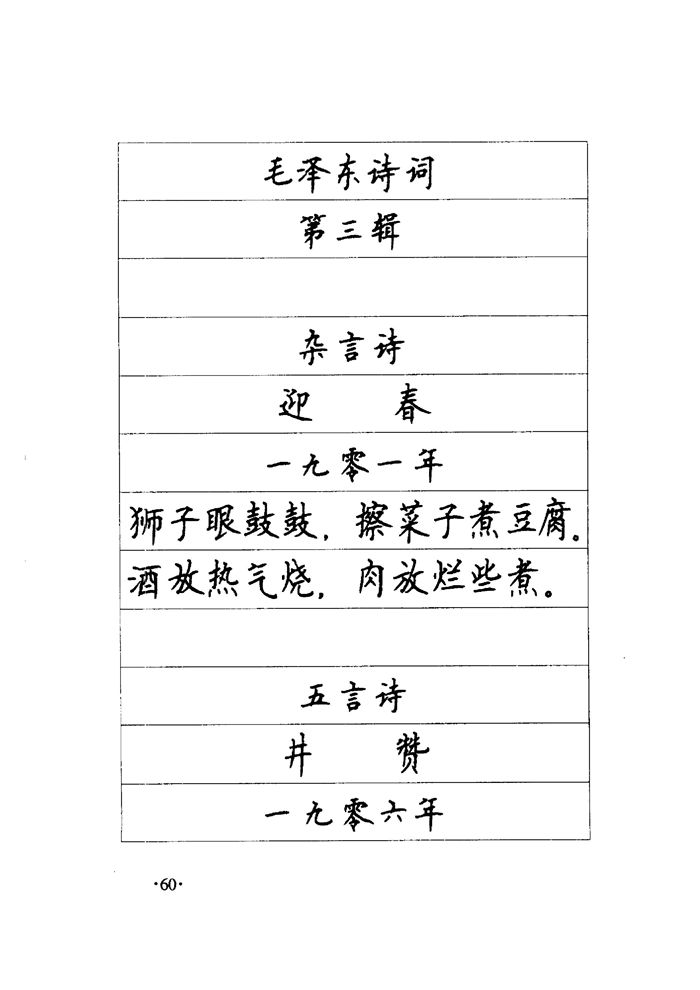 毛泽东诗词
第三辑
杂言诗
迎 春
一九零一年
狮子眼鼓鼓，擦菜子煮豆腐。
酒放热气烧，肉放烂些煮。
五言诗
井 赞
一九零六年
·60·